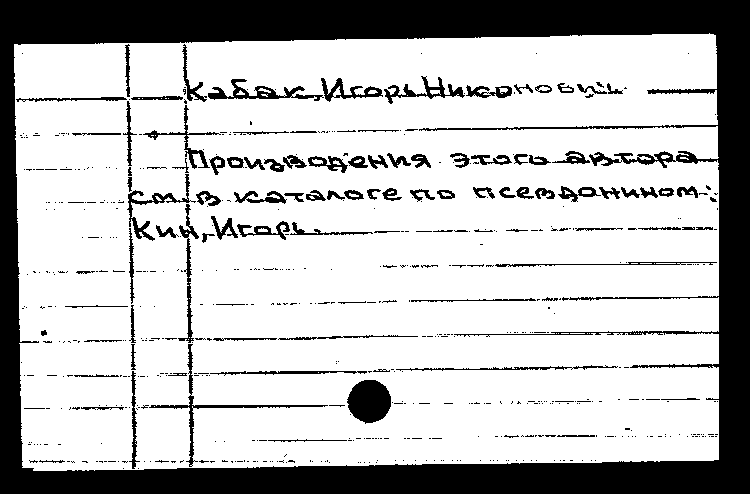 Кабак, Игорь Никонович
Произведения этого автора
см. в каталоге по псевдонином:
Кин, Игорь.